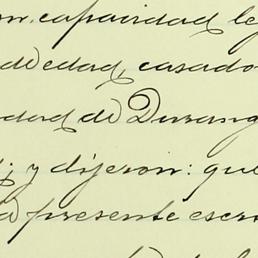 on capacidad le
de edad, casado
dad de Durang
; y dijeron: que
a presente escri